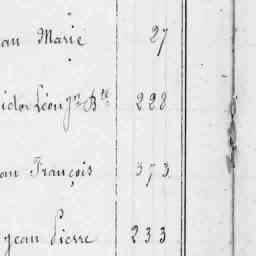 an Marie 27
ictor Léon Jn Bte 228
an François 373
Jean Pierre 233